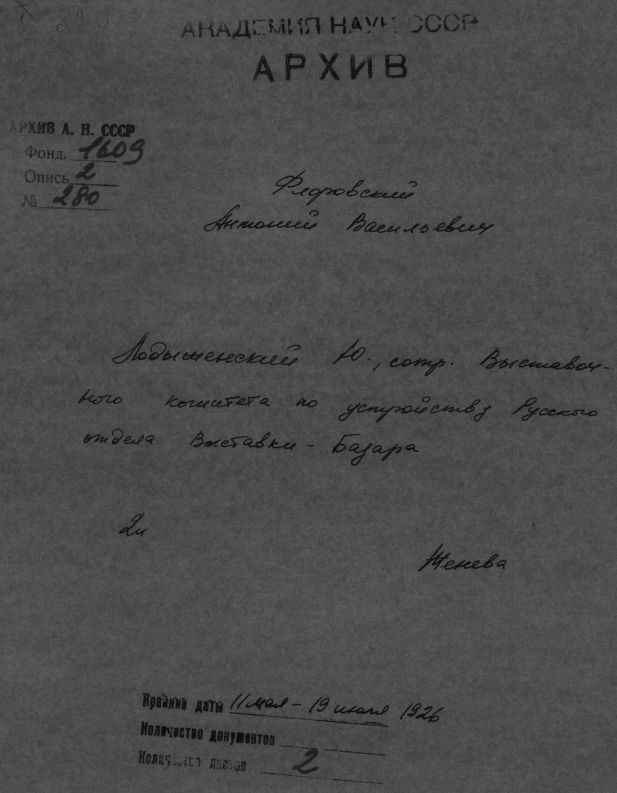 АКАДЕМИЯ НАУК СССР
АРХИВ
АРХИВ А. Н. СССР
Фонд. 1609
Опись 2
№ 280
Флоровский
Антоний Васильевич
Лодыженский Ю., сотр. Выставоч-
ного комитета по устройству Русского
отдела Выставки - Базара
2п
Женева
Крайние даты 11 мая - 19 июля 1926
Количество документов
Количество листов 2